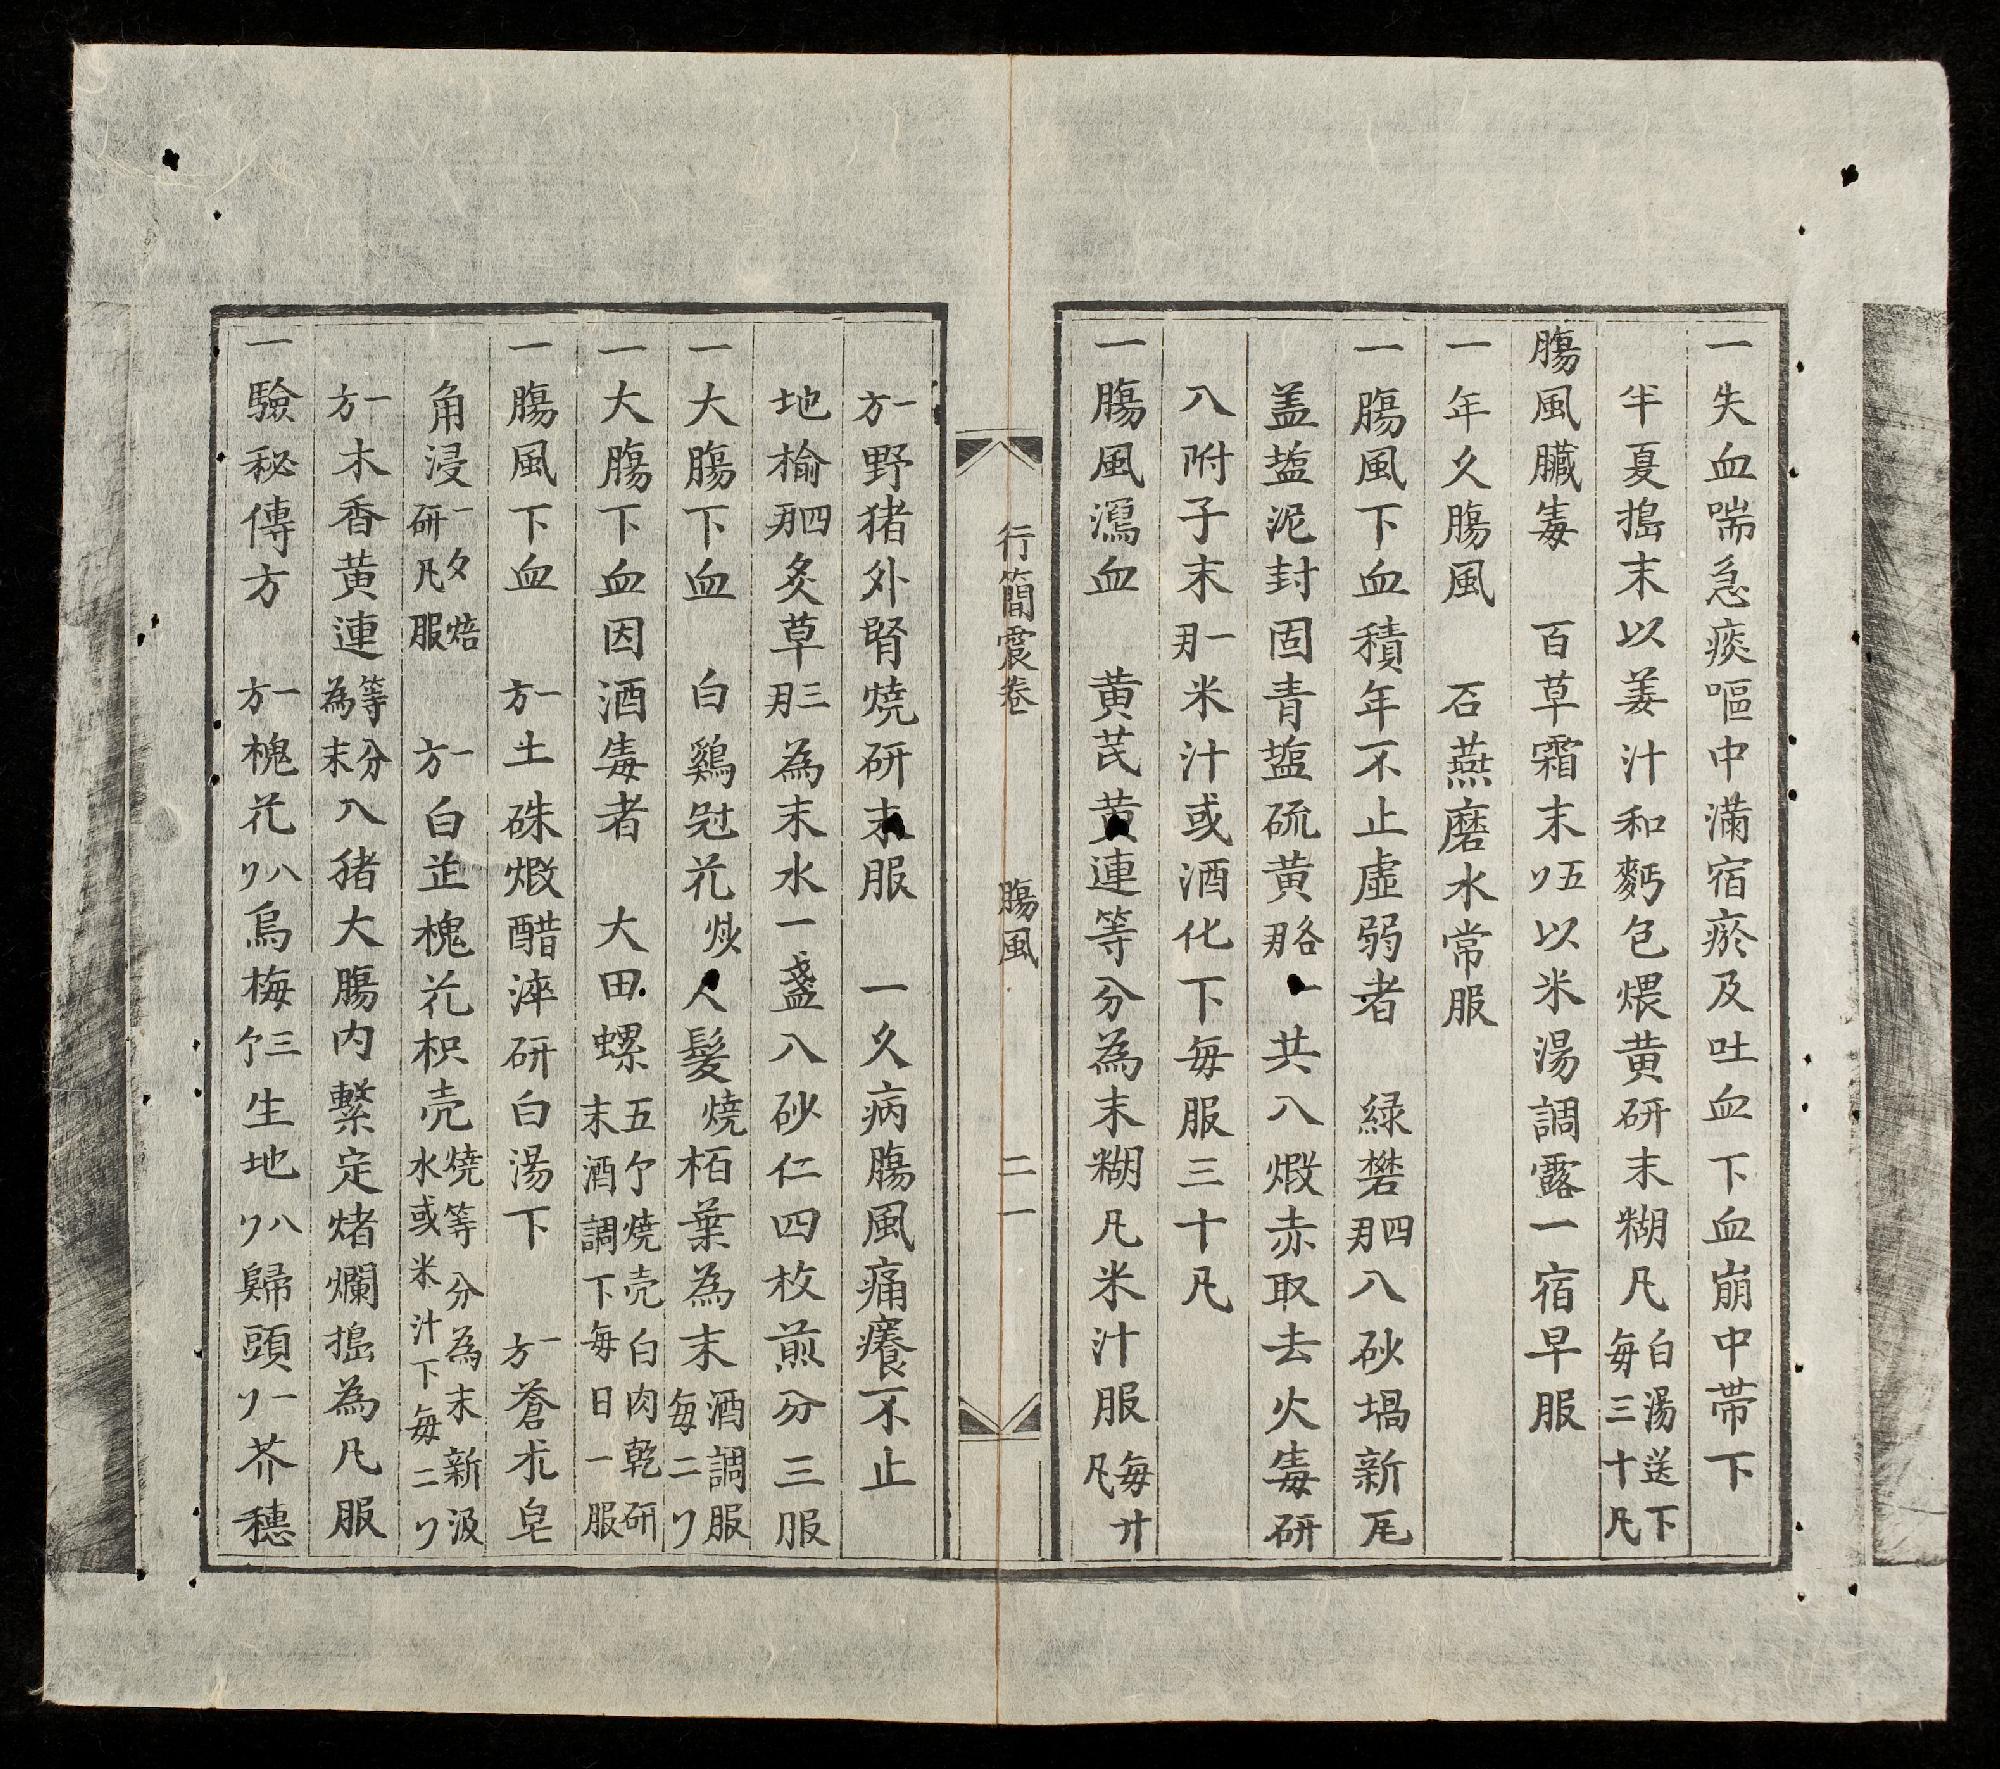 一失血喘急痰嘔中滿宿瘀及吐血下血崩中帶下
半夏搗末以姜汁和麪包煨黄研末糊凡白湯送下每三十凡
腸風臟毒　百草霜末五以米湯調露一宿早服
一年久腸風　石燕磨水常服
一腸風下血積年不止虛弱者　綠礬四入砂堝新瓦
盖塩泥封固青塩硫黄各一共入煆赤取去火毒研
入附子末一米汁或酒化下每服三十凡
一腸風瀉血　黄芪黄連等分為末糊凡米汁服每廿凡
行簡震卷　腸風　二一
一方野猪外腎燒研末服　一久病腸風痛癢不止
地榆四炙草三為末水一盞入砂仁四枚煎分三服
一大腸下血　白鷄冠花炒人髮燒栢葉為末酒調服每二
一大腸下血因酒毒者　大田螺五个燒壳白肉乾研末酒調下每日一服
一腸風下血　一方土硃煆醋淬研白湯下　一方蒼朮皂
角浸一夕焙研凡服　一方白芷槐花枳壳燒等分為末新汲水或米汁下每二
一方木香黄連等分為末入猪大腸内繫定煮爛搗為凡服
一驗秘傳方　一方槐花八烏梅三个生地八歸頭一芥穗